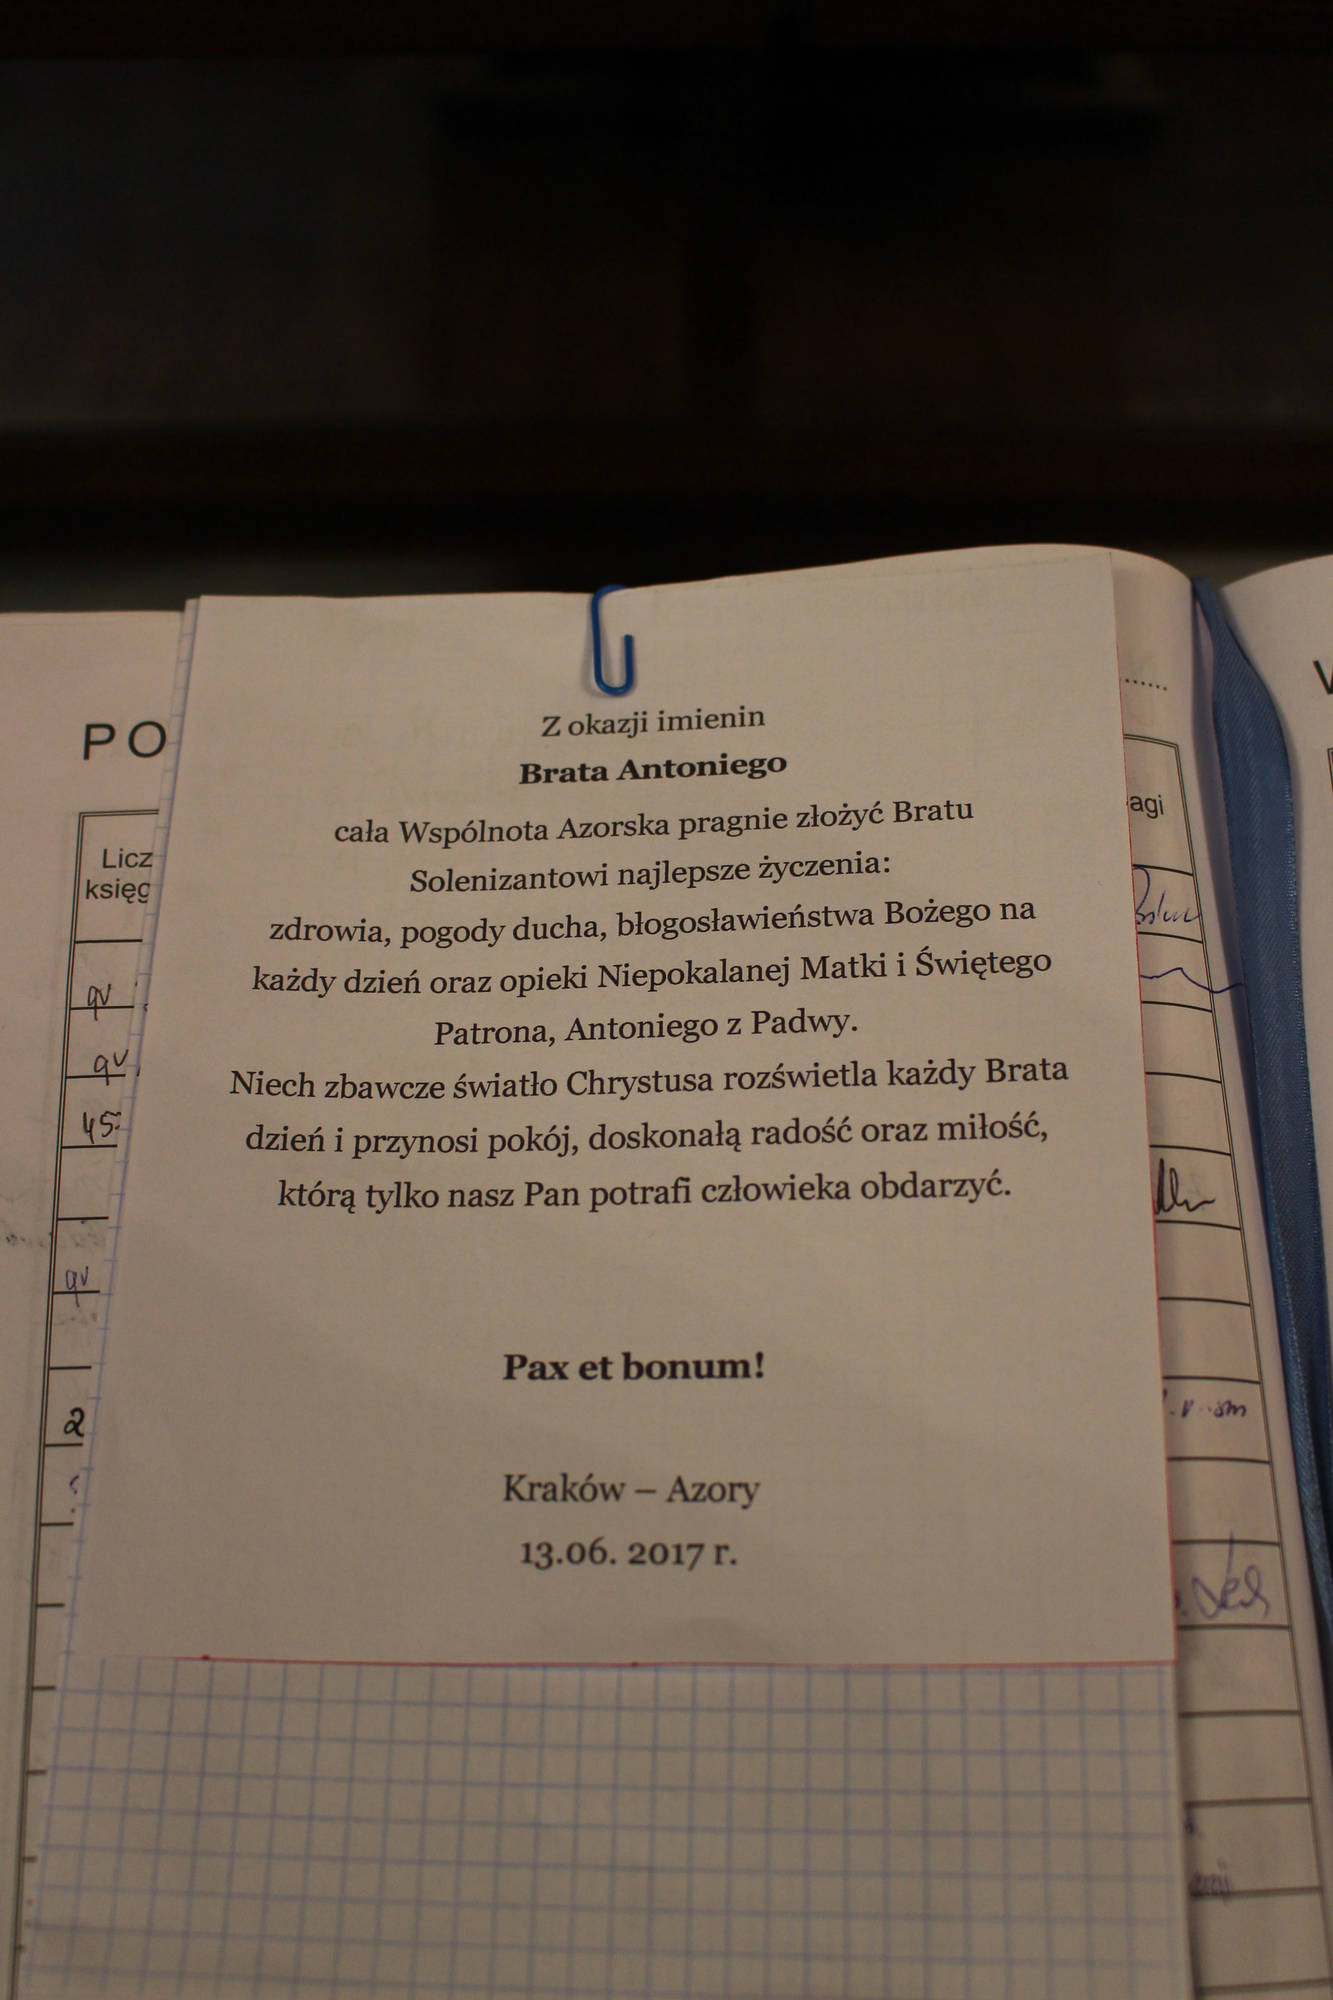 Z okazji imienin
Brata Antoniego
cała Wspólnota Azorska pragnie złożyć Bratu
Solenizantowi najlepsze życzenia:
zdrowia, pogody ducha, błogosławieństwa Bożego na
każdy dzień oraz opieki Niepokalanej Matki i Świętego
Patrona, Antoniego z Padwy.
Niech zbawcze światło Chrystusa rozświetla każdy Brata
dzień i przynosi pokój, doskonałą radość oraz miłość,
którą tylko nasz Pan potrafi człowieka obdarzyć.
Pax et bonum!
Kraków – Azory
13.06. 2017 r.
PO
Licz
księg
45
2
agi